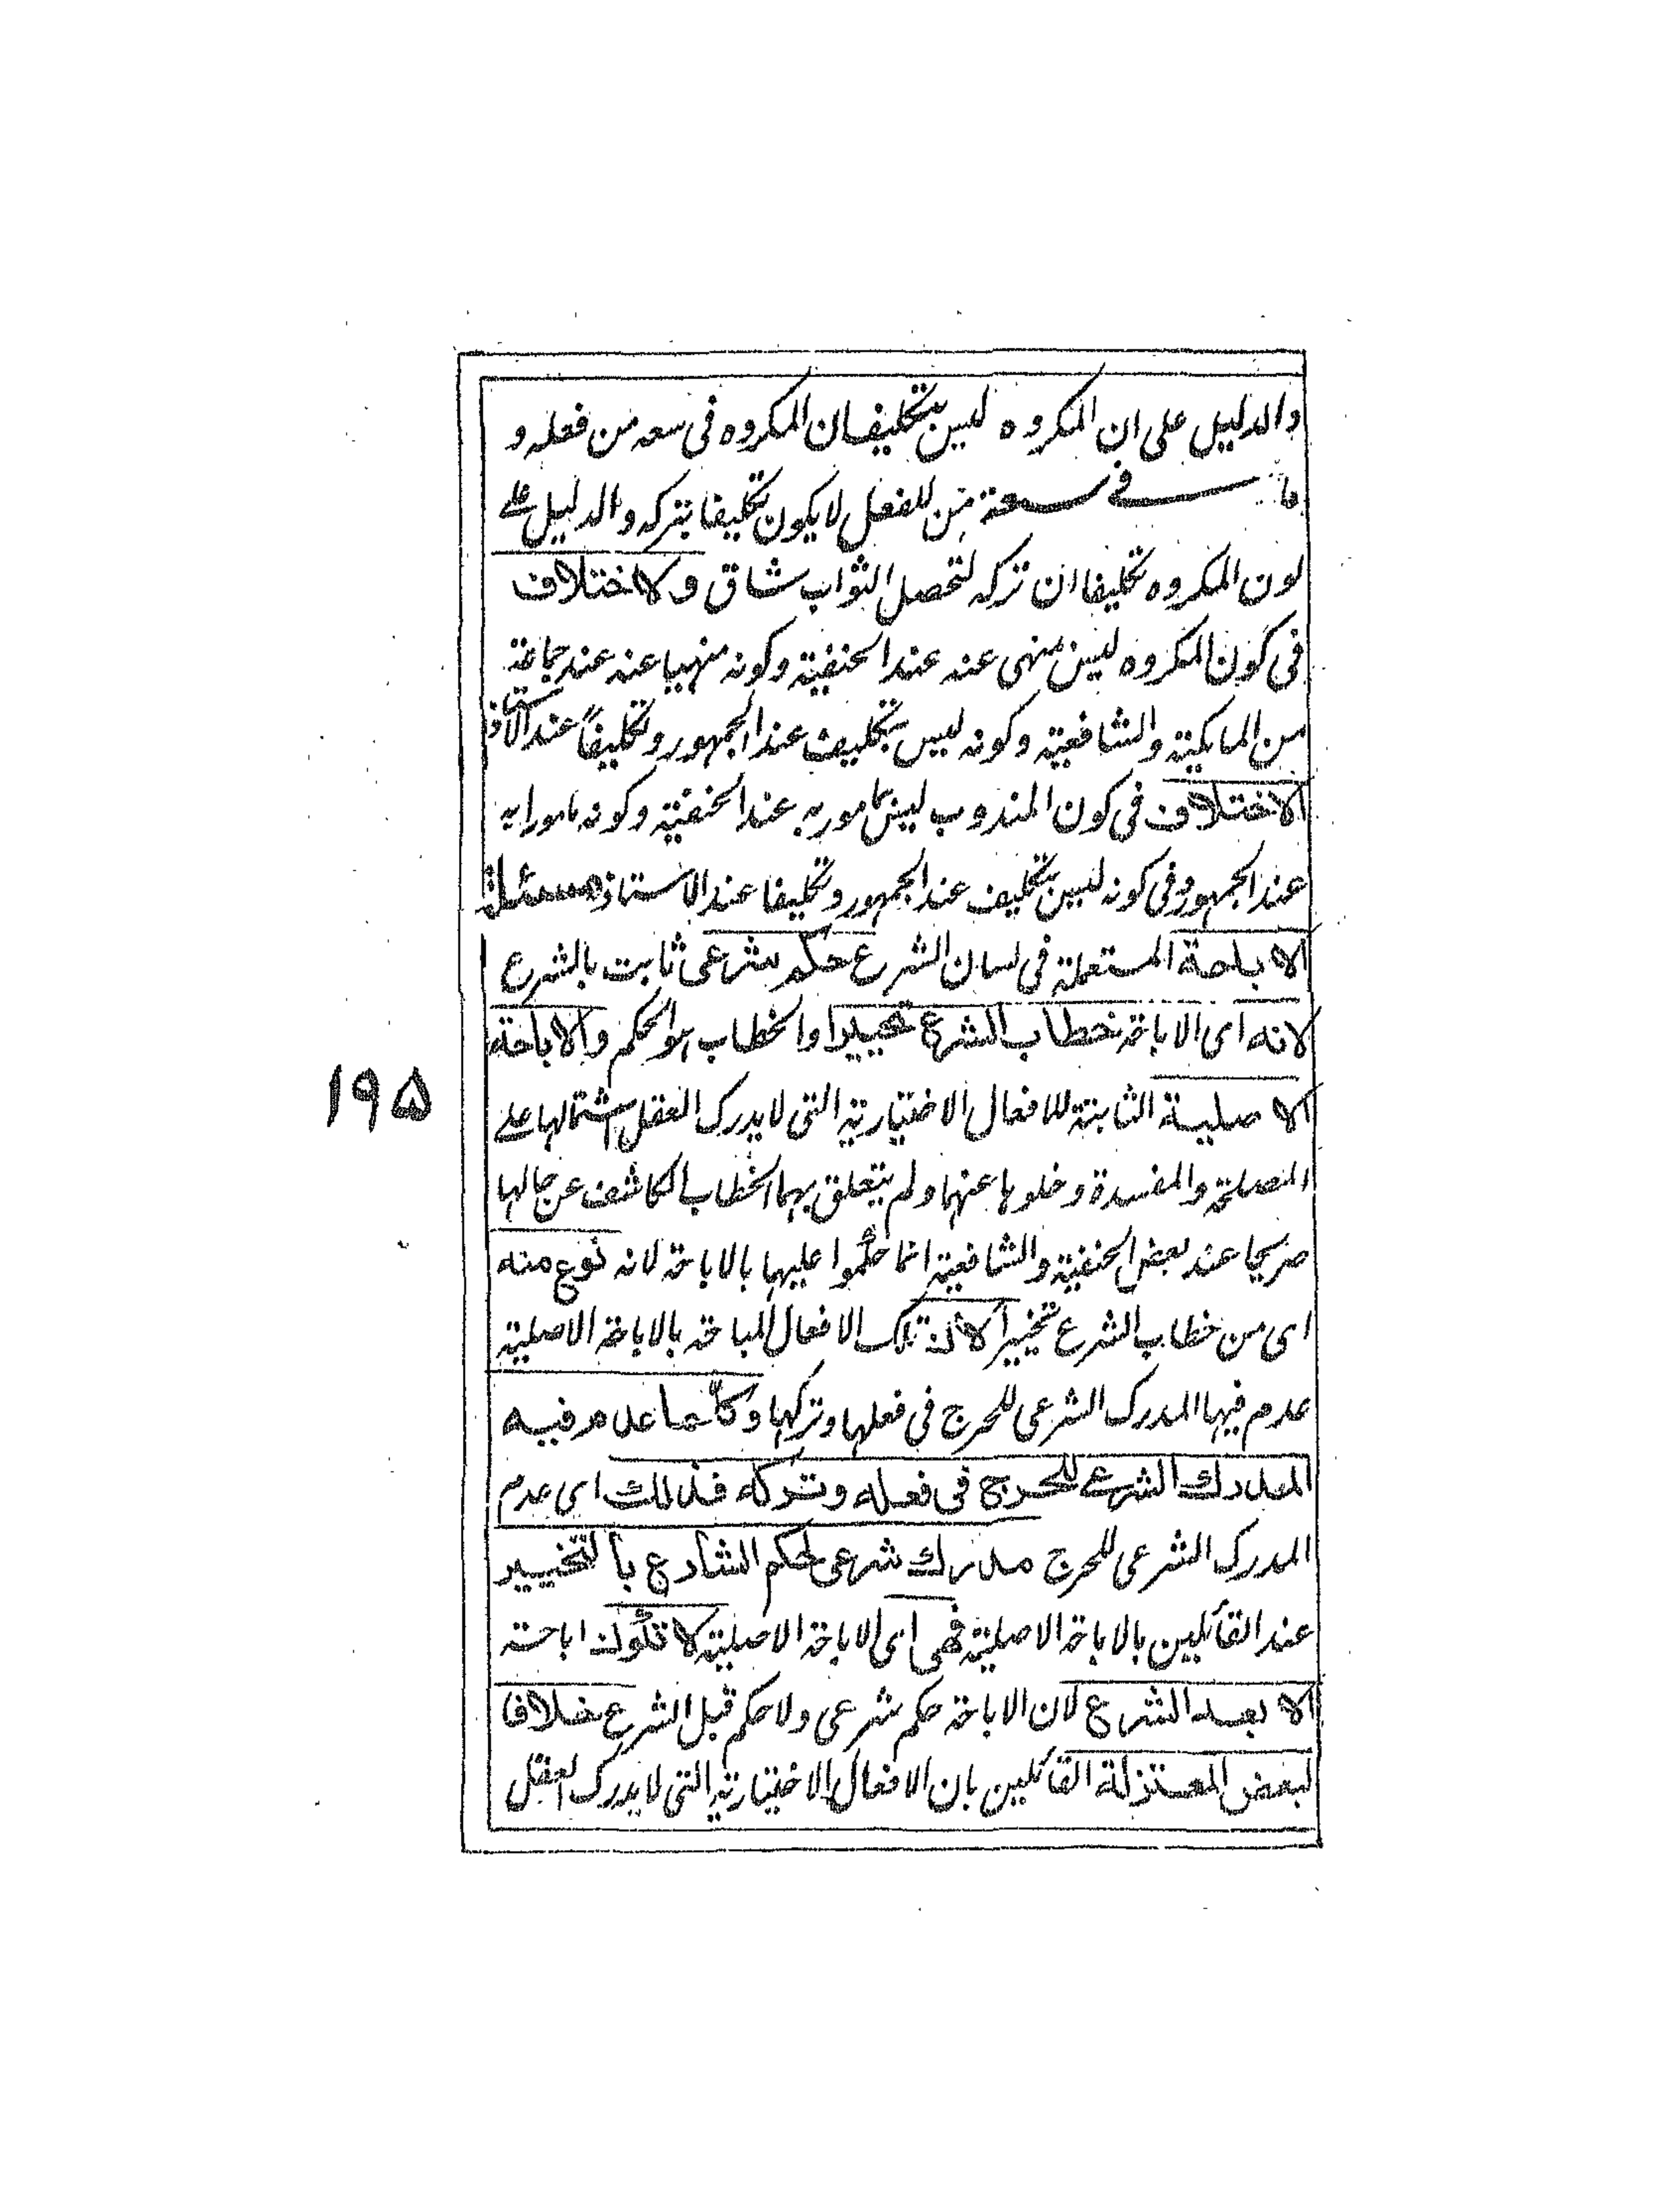 والدليل على ان المكروه ليس بتكليف ان المكروه فى سعه من فعله و
ما فى سعة من للفعل لا يكون تكليفا بتركه والدليل على
لون المكروه تكليفا ان تركه لتحصل الثواب شاق والاختلاف
فى كون المكروه ليس منهى عنه عند الحنفية وكونه منهيا عنه عند جماعة
من المالكية والشافعية وكونه ليس بتكليف عند الجمهور وتكليفاً عند الاستاذ
الاختلاف فى كون المندوب ليس بمامور به عند الحنفية وكونه مامورا به
عند الجمهور وفى كونه ليس بتكليف عند الجمهور وتكليفا عند الاستاذ مسئلة
الاباحة المستعملة فى لسان الشرع حكم شرعى ثابت بالشرع
لانه اى الاباحة خطاب الشرع تخييرا والخطاب هو الحكم والاباحة
الاصلية الثابتة للافعال الاختيارية التى لا يدرك العقل اشتمالها على
المصلحة والمفسدة وخلوها عنهما ولم يتعلق بهما الخطاب الكاشف عن حالها
صريحا عند بعض الحنفية والشافعية انما حكموا عليها بالاباحة لانه نوع منه
اى من خطاب الشرع تخييرا لان تلك الافعال المباحة بالاباحة الاصلية
عدم فيها المدرك الشرعى للحرج فى فعلها وتركها وكلما عدم فيه
المدرك الشرعى للحرج فى فعله وتركه فذلك اى عدم
المدرك الشرعى للحرج مدرك شرعى لحكم الشارع بالتخيير
عند القائلين بالاباحة الاصلية فهى اى الاباحة الاصلية لا تكون اباحته
الا بعد الشرع لان الاباحة حكم شرعى ولا حكم قبل الشرع خلافا
لبعض المعتزلة القائلين بان الافعال الاختيارية التى لا يدرك العقل
۱۹۵